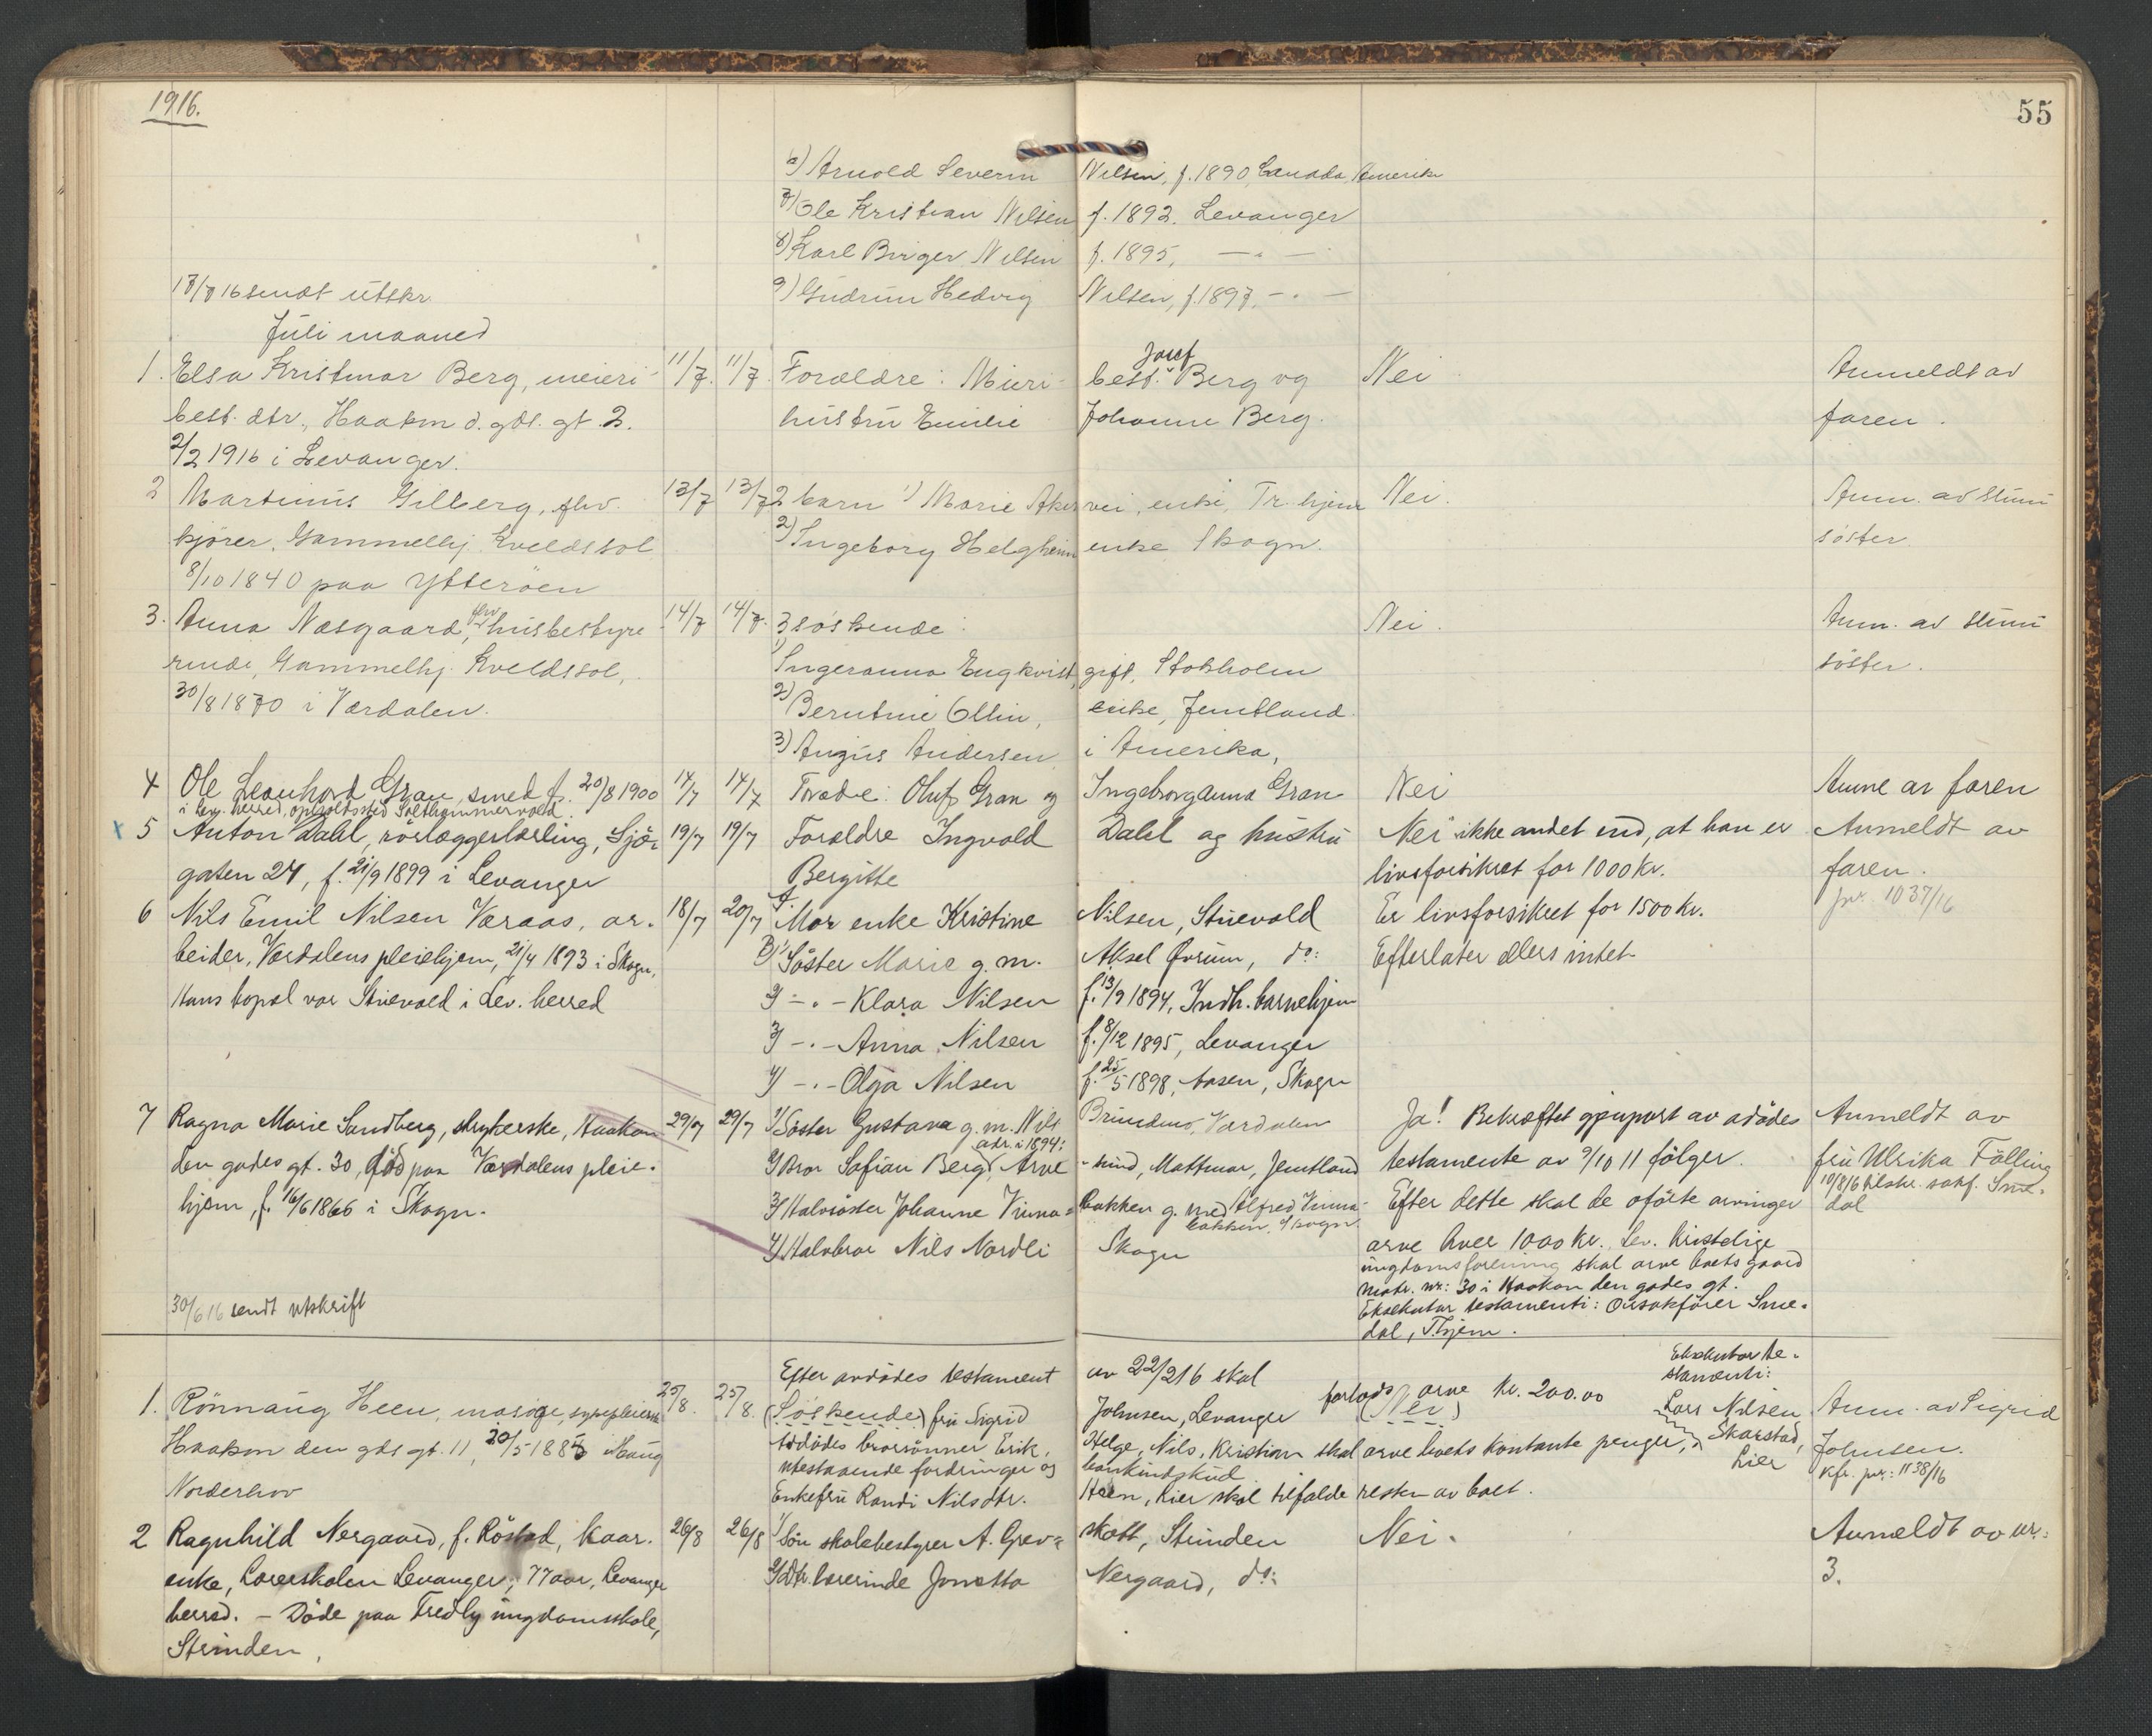 1916.
55
6) Arnold Severin Nilsen, f. 1890, Canada, Amerika
7) Ole Kristian Nilsen f. 1892. Levanger
8) Karl Birger Nilsen f. 1895, — " —
9) Gudrun Hedvig Nilsen, f. 1897, — " —
17/7 16 sendt utskr
Juli maaned
1. Elsa Kristmar Berg, meieri- 11/7. 11/7. Forældre: Mieri- best. Josef Berg og Nei. Anmeldt av
best. dtr., Haakon d. gdt. gt. 2. hustru Emilie Johanne Berg. faren.
2/2 1916 i Levanger.
2 Martinus Gilberg, fhv. 13/7 13/7 2 barn 1) Marie Akervei, enke, Tr.hjem Nei. Anm. av stuu
kjører, Gammelhj. Kveldssol 2) Ingeborg Helgheim enke Skogn. søster
8/10 1840 paa Ytterøen
3. Anna Næsgaard, fhv husbestyre- 14/7 14/7. 3 søskende: Nei. Anm. av stuu
rinde, Gammelhj. Kveldssol, 1) Ingeranna Engkvist, gift, Stokholm søster.
30/8 1870 i Værdalen. 2) Berntine Ollin, enke, Jemtland.
3) Angus Andersen i Amerika,
4 Ole Leonhard Gran, smed f. 20/8 1900 14/7 14/7 Foræde: Oluf Gran og Ingeborganna Gran Nei Anme av faren
i Lev. herred, opholdssted Salthammervold.
x 5 Anton Dahl, rørlæggerlærling, Sjø- 19/7 19/7 Forældre Ingvald Dahl og hustru Nei ikke andet end, at han er Anmeldt av
gaten 24, f. 21/9 1899 i Levanger Bergitte livsforsikret for 1000 kr. faren.
6 Nils Emil Nilsen Væraas, ar- 18/7 20/7 A. Mor enke Kristine Nilsen, Stuevold Er livsforsikret for 1500 kr. jnr. 1037/16
beider, Værdalens pleiehjem, 21/4 1893 i Skogn, B) 1) Søster Marie g. m. Aksel Ørum, do: Efterlater ellers intet.
Hans bopæl var Stuevold i Lev. herred 2) - " - Klara Nilsen f. 13/9 1894, Indh. barnehjem
3) - " - Anna Nilsen f. 8/12 1895, Levanger
4) - " - Olga Nilsen f. 25/5 1898, Aasen, Skogn
7 Ragna Marie Sandberg, strykerske, Haakon 29/7 29/7 1) Søster Gustava g. m. Nils Brundmo, Værdalen Ja! Bekræftet gjenpart av avdødes Anmeldt av
den godes gt. 30, død paa Værdalens pleie- 2) Bror Safian Berg, adr. i 1894: Arve- sund, Mattmar, Jemtland testamente av 9/10 11 følger. fru Ulrika Fölling
hjem, f. 16/6 1866 i Skogn. 3) Halvsøster Johanne Vinna- bakken g. med Alfred Vinna- bakken, Skogn Efter dette skal de oførte arvinger 10/8 16 tilskr. sakf. Sme-
dal
4) Halvbror Nils Nordli Skogn arve hver 1000 kr. Lev. Kristelige
ungdomsforening skal arve boets gaard
30/6 16 sendt utskrift matr. nr: 30 i Haakon den godes gt.
Eksekutor testamenti: Overretssakfører Sme-
dal, T.hjem.
Efter avdødes testament av 22/2 16 skal Eksekutor te-
stamenti:
1. Rønnaug Heen, masøse, sykepleierske 25/8. 25/8. (Søskende) fru Sigrid Johnsen, Levanger forlods arve kr. 200.00 (Nei) Lars Nilsen Anm. av Sigrid
Haakon den gds gt. 11, 20/5 1885 Haug Avdødes brorsønner Erik, Helge, Nils, Kristian skal arve boets kontante penger, Skarstad, Lier Johnsen.
Norderhov utestaaende fordringer og bankindskud. Kfr. jnr.: 1138/16
Enkefru Randi Nilsdtr. Heen, Lier skal tilfalde resten av boet.
2 Ragnhild Nergaard, f. Røstad, kaar- 26/8 26/8 1) Søn skolebestyrer A. Grev- skott, Strinden Nei. Anmeldt av nr.:
enke, Lærerskolen Levanger, 77 aar, Levanger 2) dtr. lærerinde Jonetta Nergaard, do: 3.
herred. - Døde paa Fredly ungdomsskole,
Strinden,